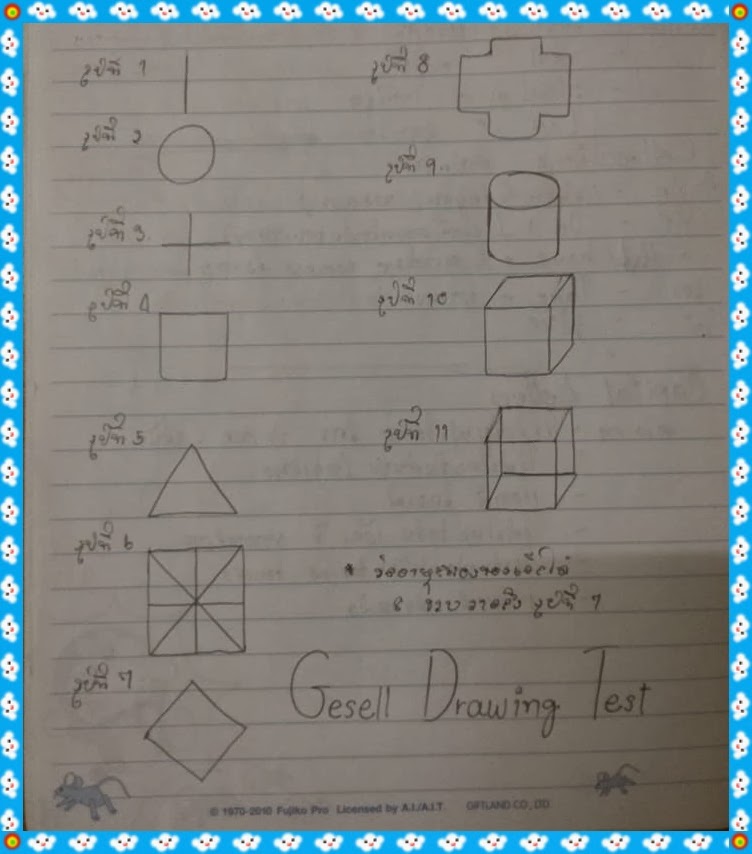 รูปที่ 1
รูปที่ 2
รูปที่ 3.
รูปที่ 4
รูปที่ 5
รูปที่ 6
รูปที่ 7
รูปที่ 8
รูปที่ 9
รูปที่ 10
รูปที่ 11
* วัดอายุสมองของเด็กได้
8 ขวบ วาดถึง รูปที่ 7
Gesell Drawing Test
© 1970-2010 Fujiko Pro Licensed by A.I./A.I.T. GIFTLAND CO., LTD.